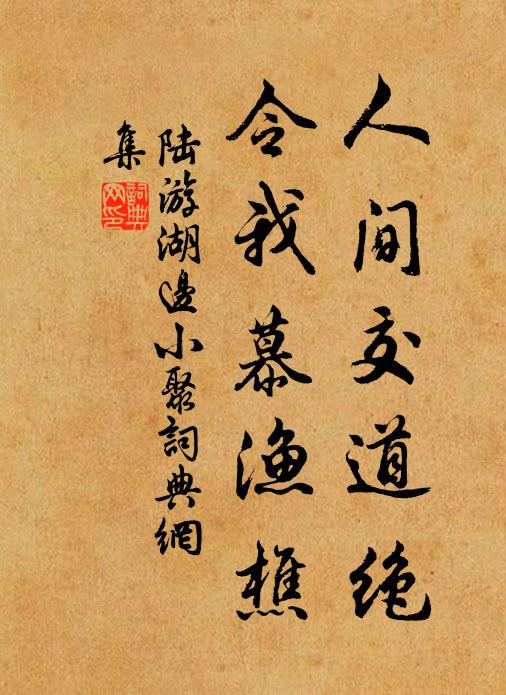 人间交道绝
令我慕渔樵
陆游湖邊小聚詞典網
集
詞典网印